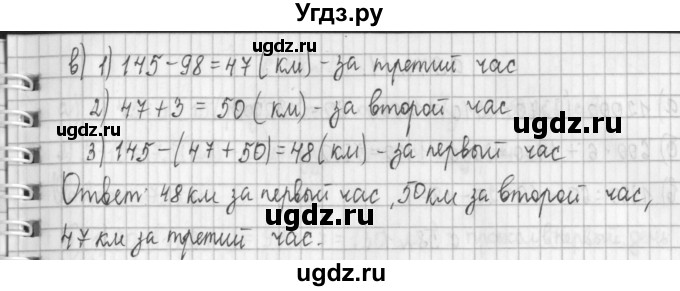 Угдз.ру
в) 1) 145-98=47 (км) - за третий час
2) 47+3=50 (км) - за второй час
3) 145-(47+50)=48 (км) - за первый час
Ответ: 48 км за первый час, 50 км за второй час,
47 км за третий час.
ugdz.ru
ugdz.ru
ugdz.ru
ugdz.ru
ugdz.ru
ugdz.ru
ugdz.ru